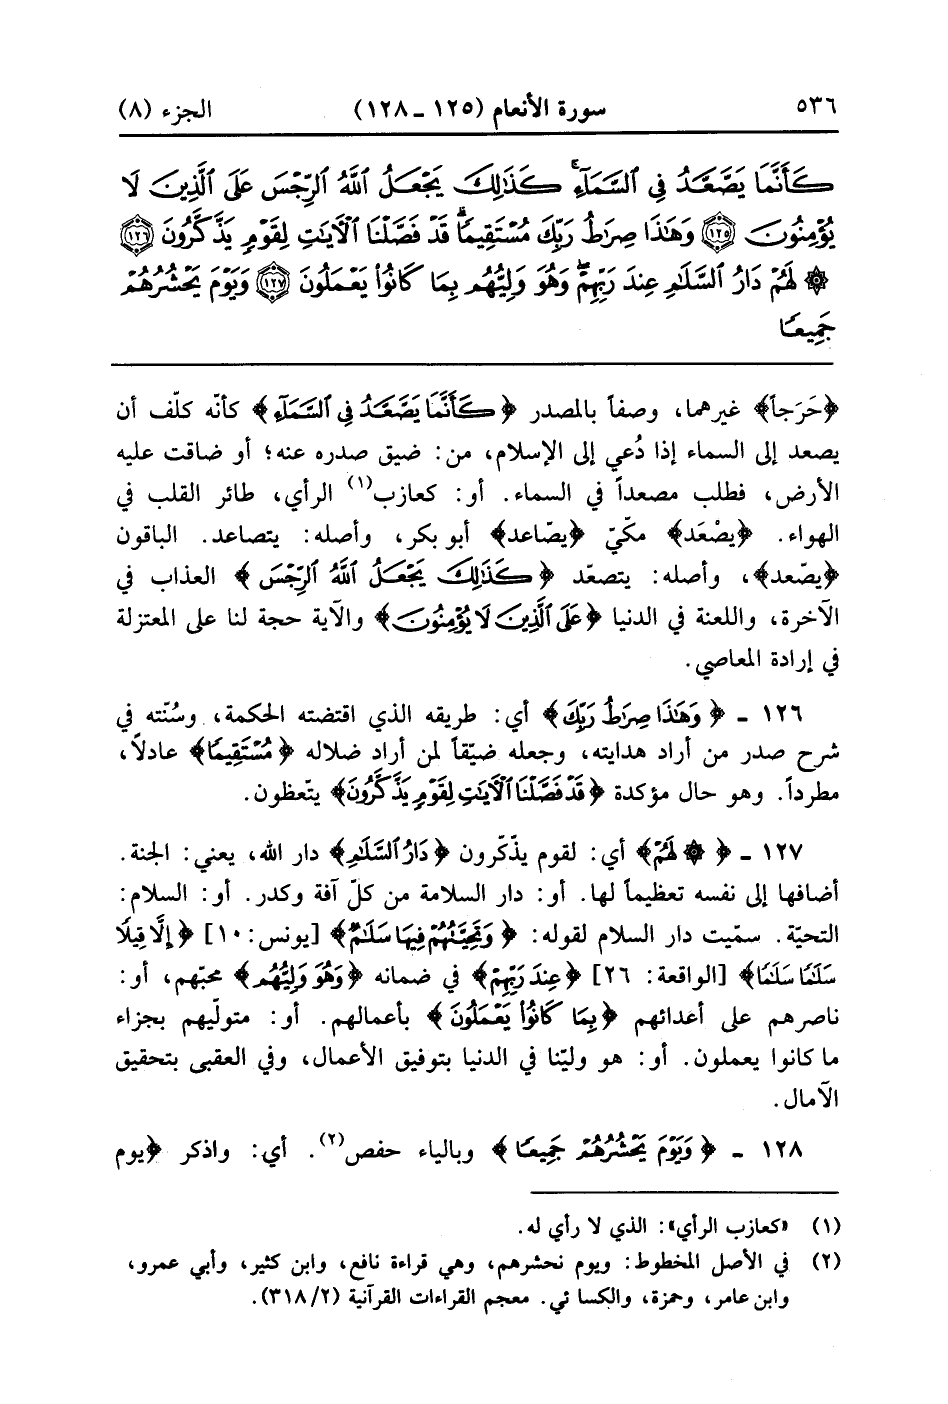 ٥٣٦ سورة الأنعام (١٢٥ - ١٢٨) الجزء (٨)
كَأَنَّمَا يَصَّعَّدُ فِي ٱلسَّمَآءِ ۚ كَذَٰلِكَ يَجْعَلُ ٱللَّهُ ٱلرِّجْسَ عَلَى ٱلَّذِينَ لَا
يُؤْمِنُونَ ۝١٢٥ وَهَٰذَا صِرَٰطُ رَبِّكَ مُسْتَقِيمًا ۗ قَدْ فَصَّلْنَا ٱلْآيَٰتِ لِقَوْمٍ يَذَّكَّرُونَ ۝١٢٦
۞ لَهُمْ دَارُ ٱلسَّلَٰمِ عِندَ رَبِّهِمْ ۖ وَهُوَ وَلِيُّهُم بِمَا كَانُوا۟ يَعْمَلُونَ ۝١٢٧ وَيَوْمَ يَحْشُرُهُمْ
جَمِيعًا
﴿حَرَجاً﴾ غيرهما، وصفاً بالمصدر ﴿كَأَنَّمَا يَصَّعَّدُ فِي ٱلسَّمَآءِ﴾ كأنّه كلّف أن
يصعد إلى السماء إذا دُعي إلى الإسلام، من: ضيق صدره عنه؛ أو ضاقت عليه
الأرض، فطلب مصعداً في السماء. أو: كعازب(١) الرأي، طائر القلب في
الهواء. ﴿يصْعَد﴾ مكّيّ ﴿يصّاعد﴾ أبو بكر، وأصله: يتصاعد. الباقون
﴿يصّعد﴾، وأصله: يتصعّد ﴿كَذَٰلِكَ يَجْعَلُ ٱللَّهُ ٱلرِّجْسَ﴾ العذاب في
الآخرة، واللعنة في الدنيا ﴿عَلَى ٱلَّذِينَ لَا يُؤْمِنُونَ﴾ والآية حجة لنا على المعتزلة
في إرادة المعاصي.
١٢٦ - ﴿وَهَٰذَا صِرَٰطُ رَبِّكَ﴾ أي: طريقه الذي اقتضته الحكمة، وسُنّته في
شرح صدر من أراد هدايته، وجعله ضيّقاً لمن أراد ضلاله ﴿مُسْتَقِيمًا﴾ عادلاً،
مطرداً. وهو حال مؤكدة ﴿قَدْ فَصَّلْنَا ٱلْآيَٰتِ لِقَوْمٍ يَذَّكَّرُونَ﴾ يتّعظون.
١٢٧ - ﴿۞ لَهُمْ﴾ أي: لقوم يذّكّرون ﴿دَارُ ٱلسَّلَٰمِ﴾ دار الله، يعني: الجنة.
أضافها إلى نفسه تعظيماً لها. أو: دار السلامة من كلّ آفة وكدر. أو: السلام:
التحيّة. سمّيت دار السلام لقوله: ﴿وَتَحِيَّتُهُمْ فِيهَا سَلَٰمٌ﴾ [يونس: ١٠] ﴿إِلَّا قِيلًا
سَلَٰمًا سَلَٰمًا﴾ [الواقعة: ٢٦] ﴿عِندَ رَبِّهِمْ﴾ في ضمانه ﴿وَهُوَ وَلِيُّهُم﴾ محبّهم، أو:
ناصرهم على أعدائهم ﴿بِمَا كَانُوا۟ يَعْمَلُونَ﴾ بأعمالهم. أو: متولّيهم بجزاء
ما كانوا يعملون. أو: هو وليّنا في الدنيا بتوفيق الأعمال، وفي العقبى بتحقيق
الآمال.
١٢٨ - ﴿وَيَوْمَ يَحْشُرُهُمْ جَمِيعًا﴾ وبالياء حفص(٢). أي: واذكر ﴿يوم
(١) «كعازب الرأي»: الذي لا رأي له.
(٢) في الأصل المخطوط: ويوم نحشرهم، وهي قراءة نافع، وابن كثير، وأبي عمرو،
وابن عامر، وحمزة، والكسائي. معجم القراءات القرآنية (٣١٨/٢).